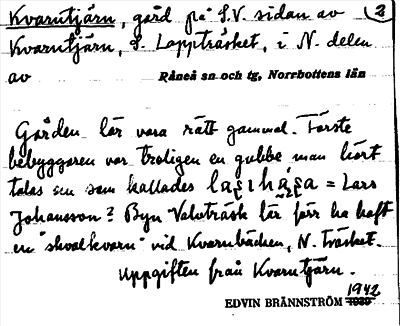 Kvarntjärn, gård på S.V. sidan av 2
Kvarntjärn, S. Lappträsket, i N. delen
av Råneå sn och tg, Norrbottens län
Gården lär vara rätt gammal. Förste
bebyggaren var troligen en gubbe man hört
talas om som kallades = Lars
Johansson? Byn Valvträsk lär förr ha haft
en "skvalkvarn" vid Kvarnbäcken, N. träsket.
Uppgiften från Kvarntjärn.
1942
EDVIN BRÄNNSTRÖM 1939